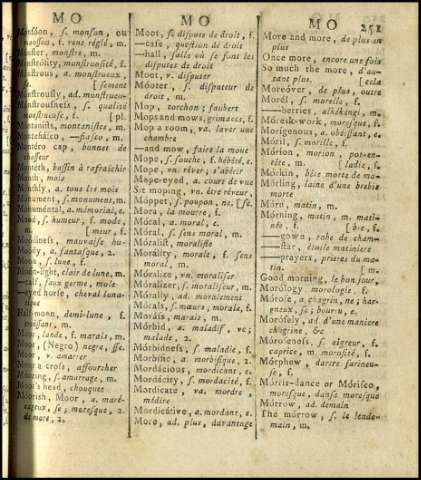 MO
Monsoon, s. monson, ou
Monster, monstre, m.
Monstrosity, monstruosité, f.
Monstrous, a. monstrueux,
[sement
Monstrously, ad. monstrueu-
Monstrousness, s. qualité
monstrueuse, f. [pl.
bonnet de
chasseur
Monthly, a. tous les mois
Monument, s. monument, m.
Monumental, a. mémorial, e.
Mood, s. humeur, f. mode,
[meur, f.
Moodiness, mauvaise hu-
Moody, a. fantasque, 2.
Moon, s. lune, f.
Moon-light, clair de lune, m.
—calf, faux germe, mole
—eyed horse, cheval luna-
Half-moon, demi-lune, f.
Moor, lande, f. marais, m.
Moor (Negro) negre, sse.
Moor, v. amarrer
Moor a cross, affourcher
Mooring, s. amarrage, m.
Moor's head, chouquet
Moorish, Moor, a. maré-
cageux, se; moresque, 2.
MO
Moot, s. dispute de droit, f.
—case, question de droit
—hall, salle où se font les
disputes de droit
Moot, v. disputer
Mooter, s. disputeur de
droit, m.
Mop, torchon; faubert
Mops and mows, grimaces, f.
Mop a room, va. laver une
chambre
—and mow, faire la moue
Mope, s. souche, f. hébété, e.
Mope, vn. rêver; s'abétir
Mope-eyed, a. courte de vue
Sit moping, vn. être rêveur,
Moppet, s. poupon, ne. [se.
Mora, la mourre, f.
Móral, a. moral, e.
Móral, s. sens moral, m.
Móralist, moraliste
Morálity, morale, f. sens
moral, m.
Móralize, vn. moraliser
Móralizer, s. moraliseur, m.
Mórally, ad. moralement
Mórals, s. mœurs, morale, f.
Moráss, marais, m.
Mórbid, a. maladif, ve;
malade, 2.
Mórbidness, s. maladie, f.
Morbific, a. morbifique, 2.
Mordácious, mordicant, e.
Mordácity, s. mordacité, f.
Mordicate, va. mordre,
médire
Mordicátive, a. mordant, e.
More, ad. plus, davantage
MO
251
More and more, de plus en
plus
Once more, encore une fois
So much the more, d'au-
tant plus. [cela
Moreóver, de plus, outre
Morél, s. morelle, f.
—berries, alkékengi, m.
Móresk-work, moresque, f.
Morígenous, a. obéissant, e.
Móril, s. morille, f.
Mórion, morion, pot-en-
tête, m. [ladie, f.
Mórkin, bête morte de ma-
Mórling, laine d'une brebis
morte
Mórn, matin, m.
Mórning, matin, m. mati-
née, f. [bre, f.
—gown, robe de cham-
—star, étoile matiniere
—prayers, prieres du ma-
tin. [m.
Good morning, le bon jour,
Morólogy, morologie, f.
Moróse, a. chagrin, ne; har-
gneux, se; bourru, e.
Morósely, ad. d'une maniere
chagrine, &c
Moróseness, s. aigreur, f.
caprice, m. morosité, f.
Mórphew, dartre farineu-
se, f.
Mórris-dance or Mórisco,
moresque, danse moresque
Mórrow, ad. demain
The mórrow, s. le lende-
main, m.